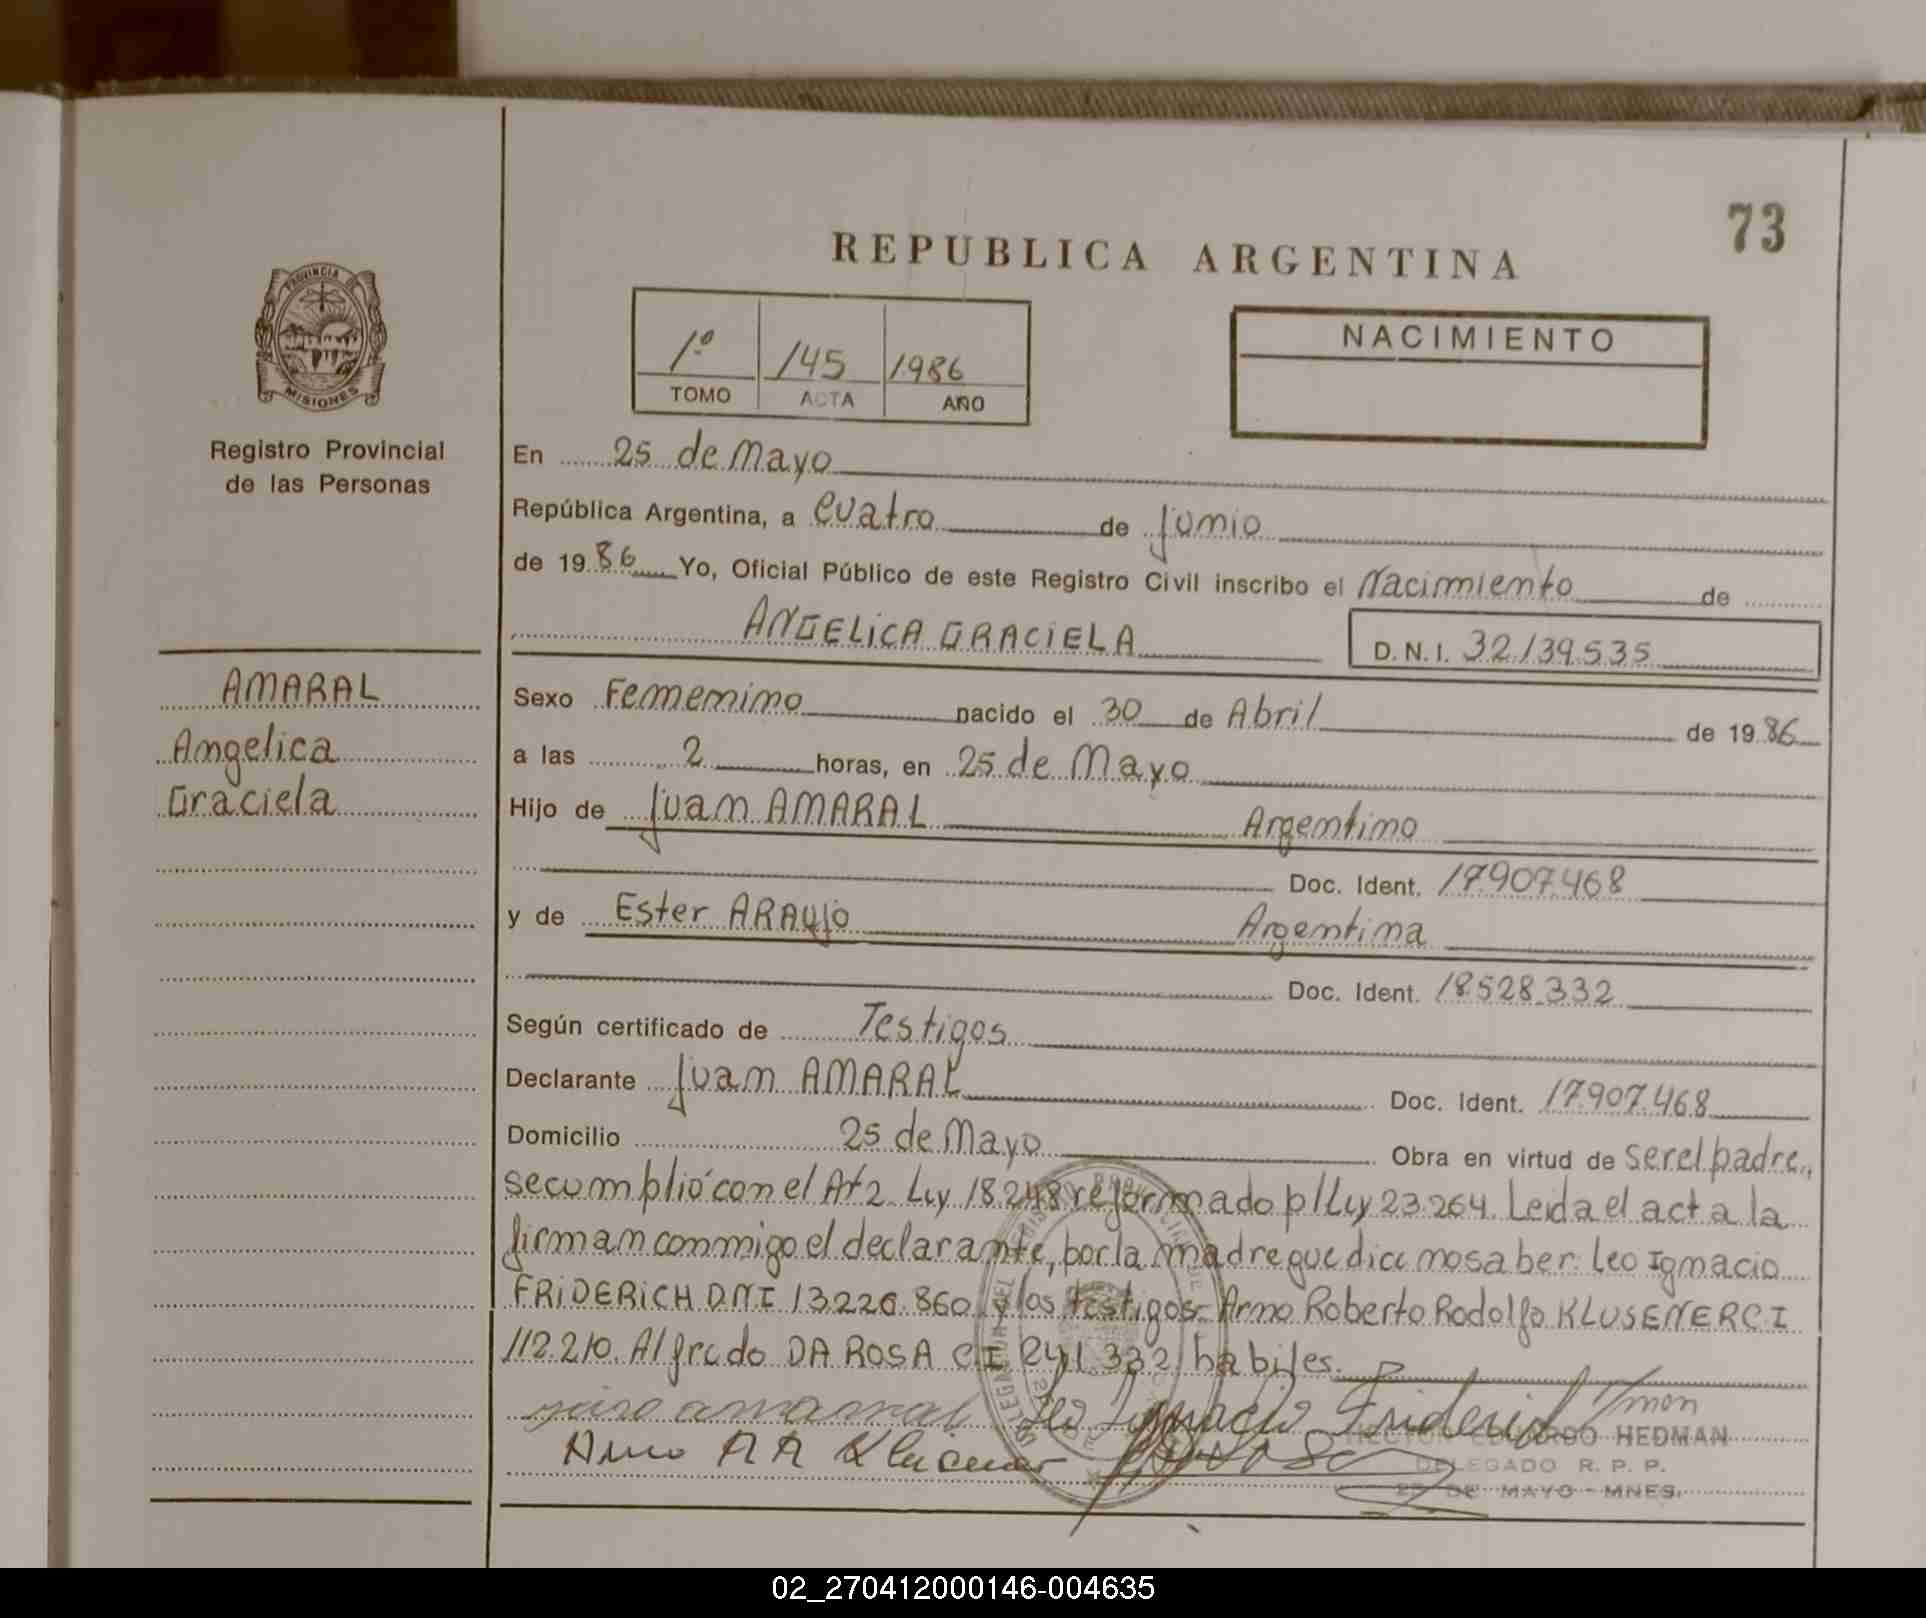 73
REPUBLICA ARGENTINA
PROVINCIA DE
MISIONES
Registro Provincial
de las Personas
1º 145 1986
TOMO ACTA AÑO
NACIMIENTO
AMARAL
Angelica
Graciela
En 25 de Mayo
República Argentina, a cuatro de Junio
de 1986 Yo, Oficial Público de este Registro Civil inscribo el Nacimiento de
ANGELICA GRACIELA D.N.I. 32139.535
Sexo Femenino nacido el 30 de Abril de 1986
a las 2 horas, en 25 de Mayo
Hijo de Juan AMARAL Argentino
Doc. Ident. 17.907.468
y de Ester ARAUJO Argentina
Doc. Ident. 18528.332
Según certificado de Testigos
Declarante Juan AMARAL Doc. Ident. 17.907.468
Domicilio 25 de Mayo Obra en virtud de ser el padre,
se cumplió con el At 2 Ley 18.248 reformado p/Ley 23.264. Leida el acta la
firman conmigo el declarante, por la madre que dice no saber: Leo Ignacio
FRIDERICH DNI 13.220.860 y los testigos: Arno Roberto Rodolfo KLUSENER C I
112.210. Alfredo DA ROSA C I 241.332 habiles.
Leo Ignacio Friderich
HECTOR EDUARDO HEDMAN
DELEGADO R. P. P.
25 DE MAYO - MNES.
02_270412000146-004635